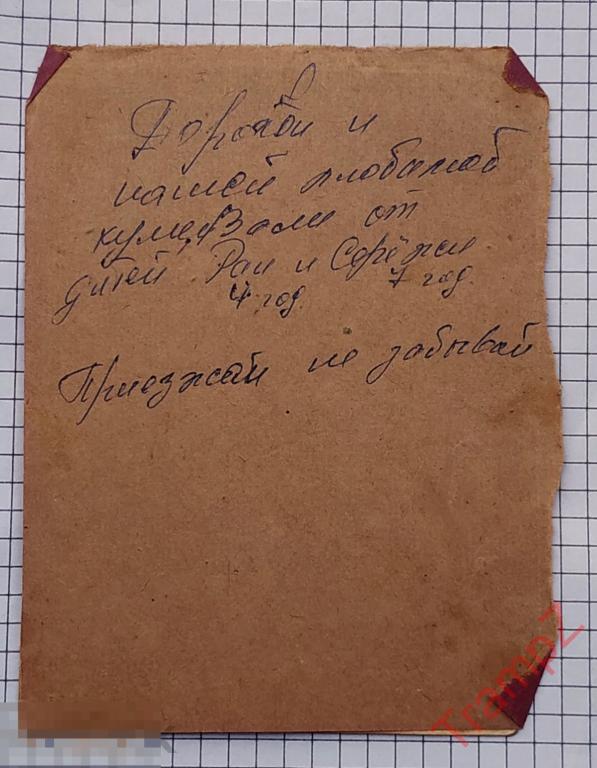 Дорогой и
нашей любимой
куме Зои от
дитей Раи и Серёжи
4 год. 7 год.
Приезжай не забывай
TrampZ